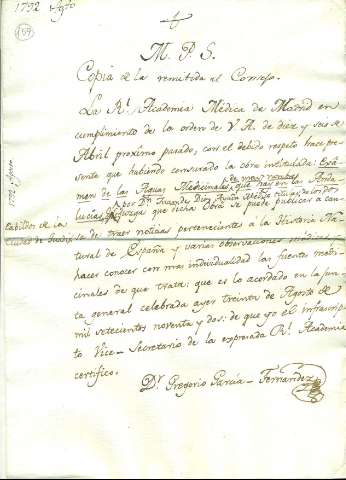 1792 Agto
159
M. P. S.
Copia de la remitida al Consejo.
La Rl. Academia Médica de Madrid en
cumplimiento de la orden de V. A. de diez y seis de
Abril proximo pasado, con el debido respeto hace pre-
sente que habiendo censurado la obra intitulada: Exá-
de mas nombre
men de las Aguas Medicinales que hay en las Anda-
lucias por Dn. Juan de Dios Ayuda Medico titular de los dos
cabildos de la juzga que dicha Obra se puede publicar á cau-
ciudad de Guadix sa de traer noticias pertenecientes a la Historia Na-
tural de España y varias observaciones
hacer conocer con mas individualidad las fuentes medi-
cinales de que trata: que es lo acordado en la jun-
ta general celebrada ayer treinta de Agosto de
mil setecientos noventa y dos: de que yo el infrascrip-
to Vice-Secretario de la expresada Rl. Academia
certifico.
Dr. Gregorio García Fernandez
1792 Agosto